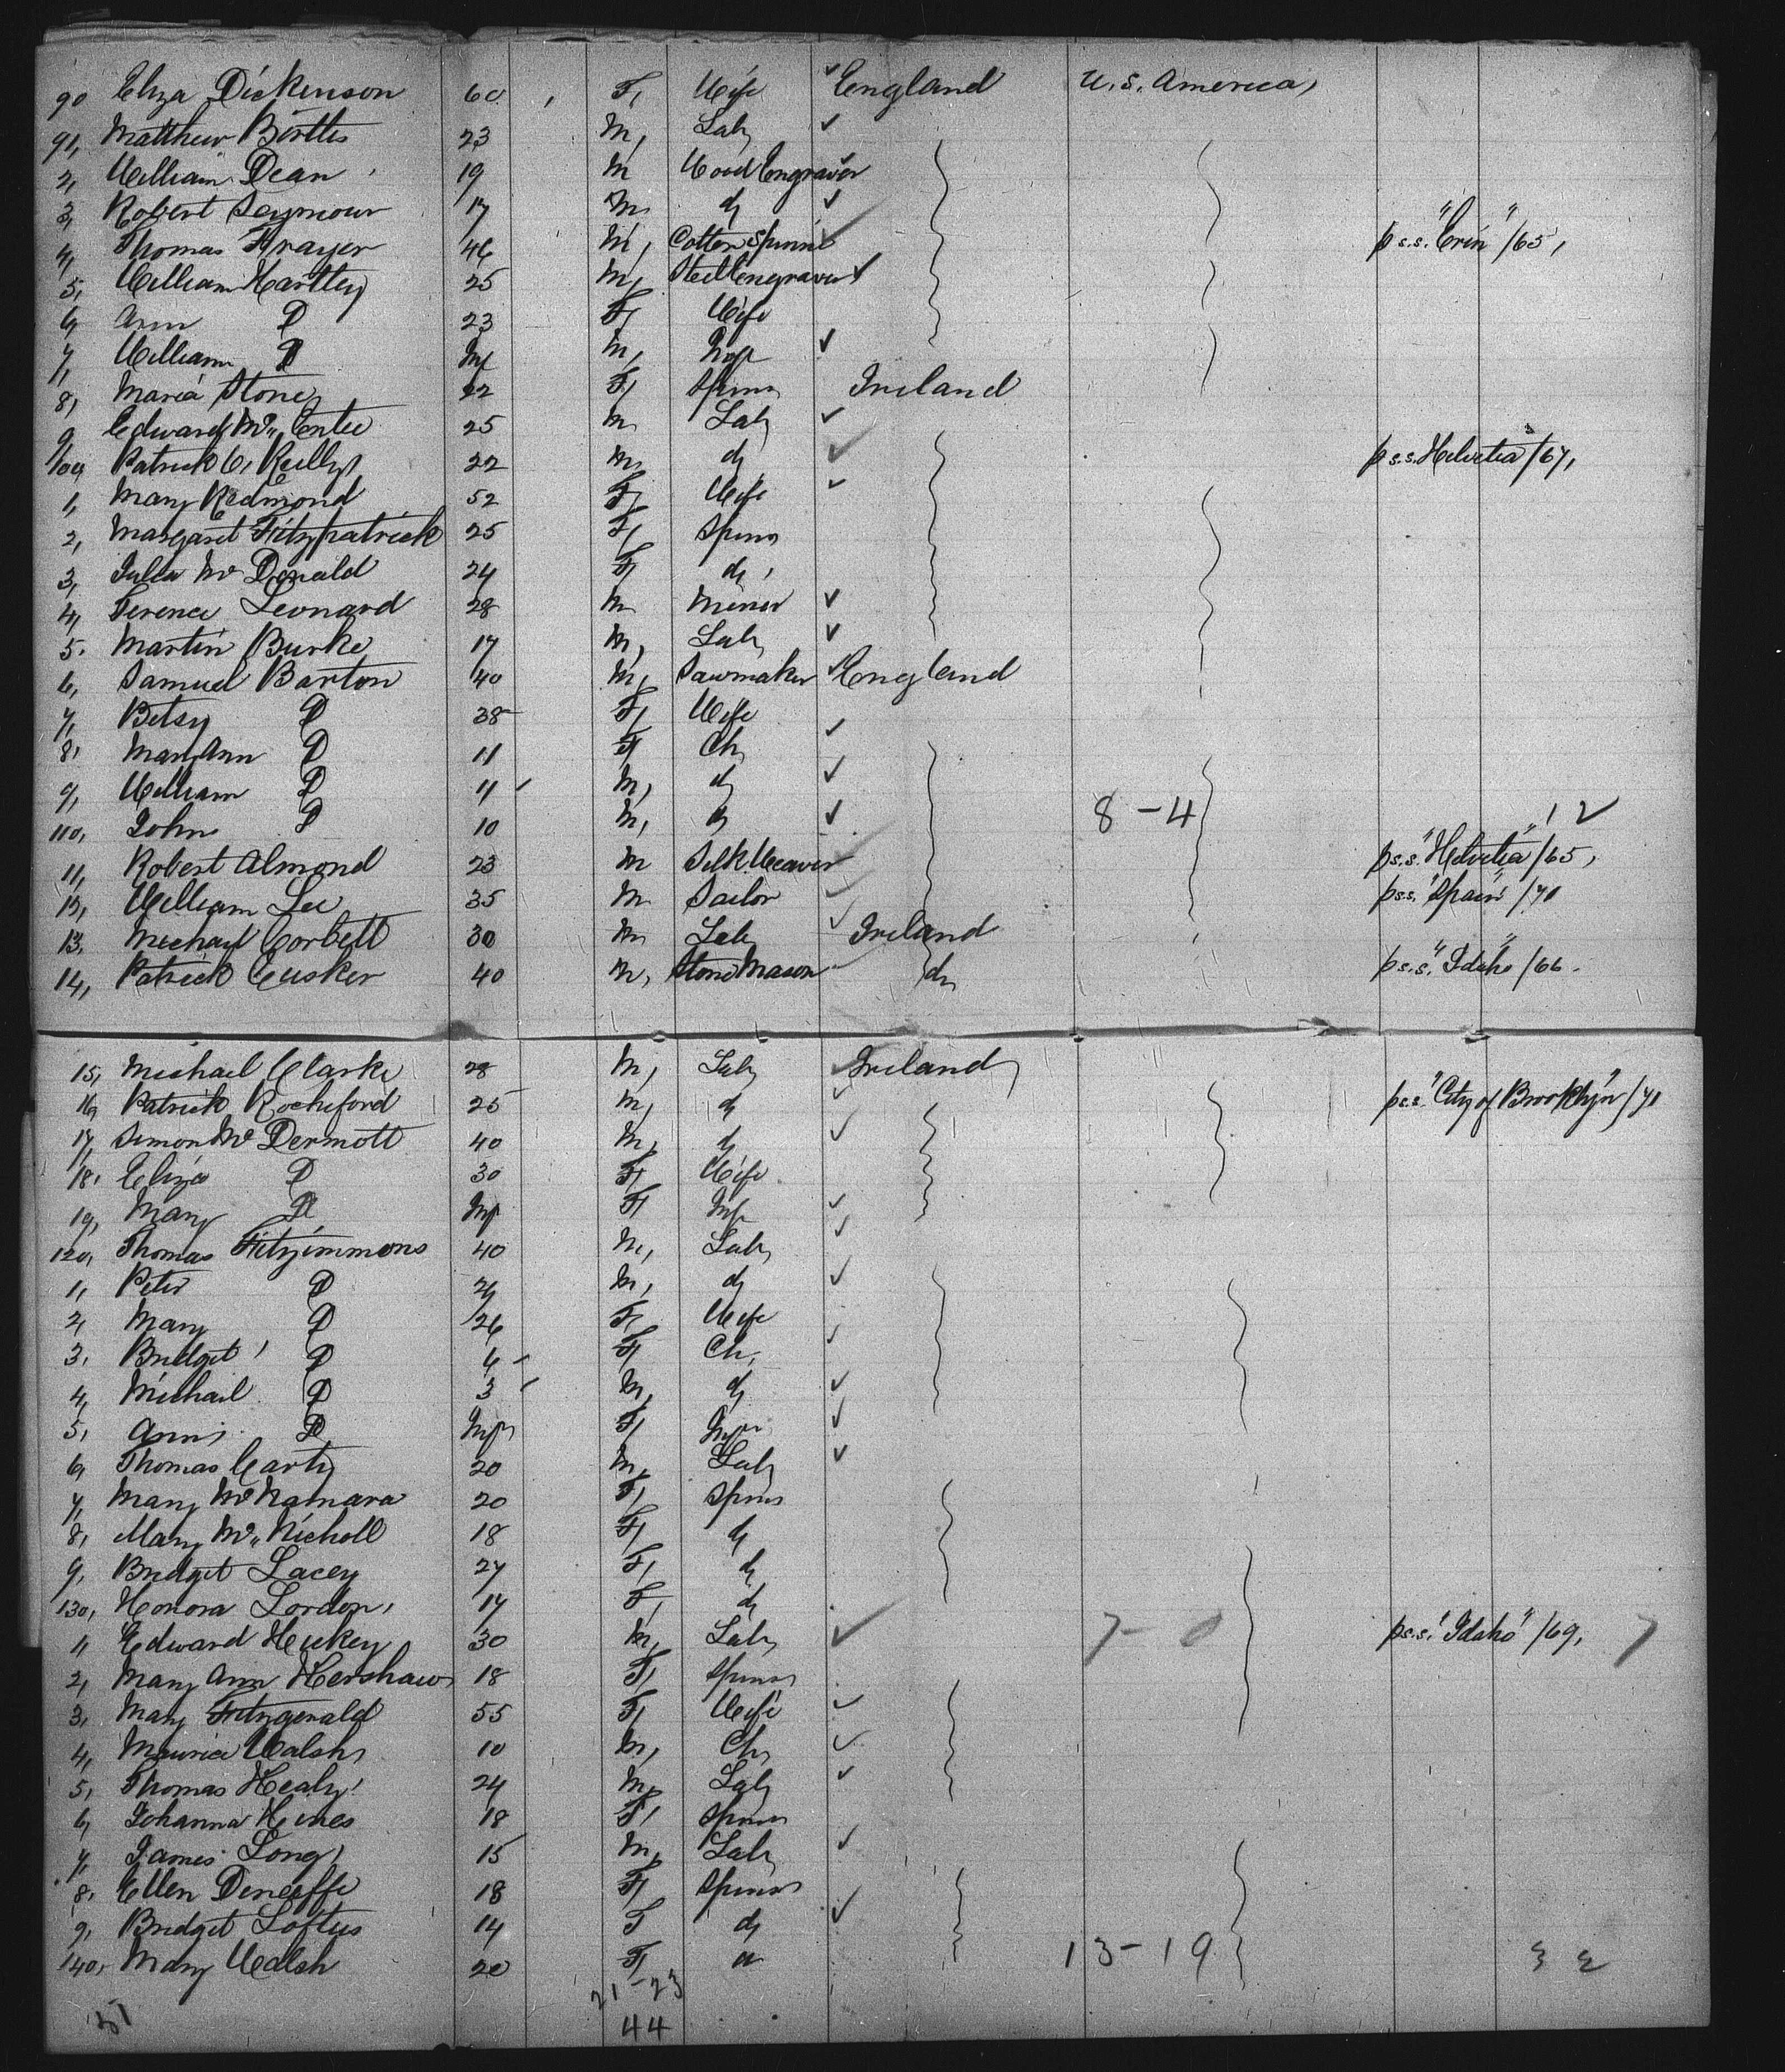 90 Eliza Dickenson 60 F, Wife England U.S. America,
91, Matthew Bottles 23 M, Lab,
2, William Dean 19 M Wood Engraver
3, Robert Seymour 17 M do
4, Thomas Frayer 46 M, Cotton Spinne p s.s. "Erin" /65,
5, William Hartley 25 M, Steel Engraver
6, Ann D 23 F, Wife
7, William D Inf M, Inf
8, Maria Stone, 22 F, Spins Ireland
9, Edward Mc. Entee 25 M Lab,
100, Patrick O, Reilly, 22 M, do p s.s. Helvetia /67,
1, Mary Redmond 52 F, Wife
2, Margaret Fitzpatrick 25 F, Spins
3, Julia Mc Donald 24 F, do,
4, Terence Leonard 28 M Miner
5. Martin Burke 17 M, Lab,
6, Samuel Barton 40 M, Sawmaker England
7, Betsy D 38 F, Wife
8, Mary Ann D 11 F Ch,
9, William D 11 M, do
110, John D 10 M, do 8-4 12
11, Robert Almond 23 M Silk Weaver p s.s. "Helvetia" /65,
12, William Lee 35 M Sailor p s.s. "Spain" /71
13, Michael Corbett 30 M Lab, Ireland
14, Patrick Cusker 40 M, Stone Mason do p s.s. "Idaho" /66.
15, Michael Clarke 28 M, Lab, Ireland
16, Patrick Rocheford 25 M, do p s.s. "City of Brooklyn" /71
17, Simon Mc Dermott 40 M, do
18, Eliza D 30 F, Wife
19, Mary D Inf F Inf
120, Thomas Fitzsimmons 40 M, Lab,
1, Peter D M, do
2, Mary D 26 F, Wife
3, Bridget D F Ch,
4, Michael D 3 M, do
5, Ann, D Inf F, Inf
6, Thomas Carty 20 M, Lab,
7, Mary Mc Namara 20 F, Spins
8, Mary Mc. Nicholl 18 F, do
9, Bridget Lacey 27 F, do
130, Honora Lordon, 17 F, do
1, Edward Hickey 30 M, Lab, 7-0 p s.s. "Idaho" /69, 7
2, Mary Ann Hershaw 18 F, Spins
3, Mary Fitzgerald 55 F, Wife
4, Maurice Walsh, 10 M, Ch,
5, Thomas Healy 24 M, Lab,
6, Johanna Hines 18 F, Spins
7, James Long, 15 M, Lab,
8, Ellen 18 F, Spins
9, Bridget Loftus 14 F do
140, Mary Walsh 20 F, 13-19
21-23
51 44